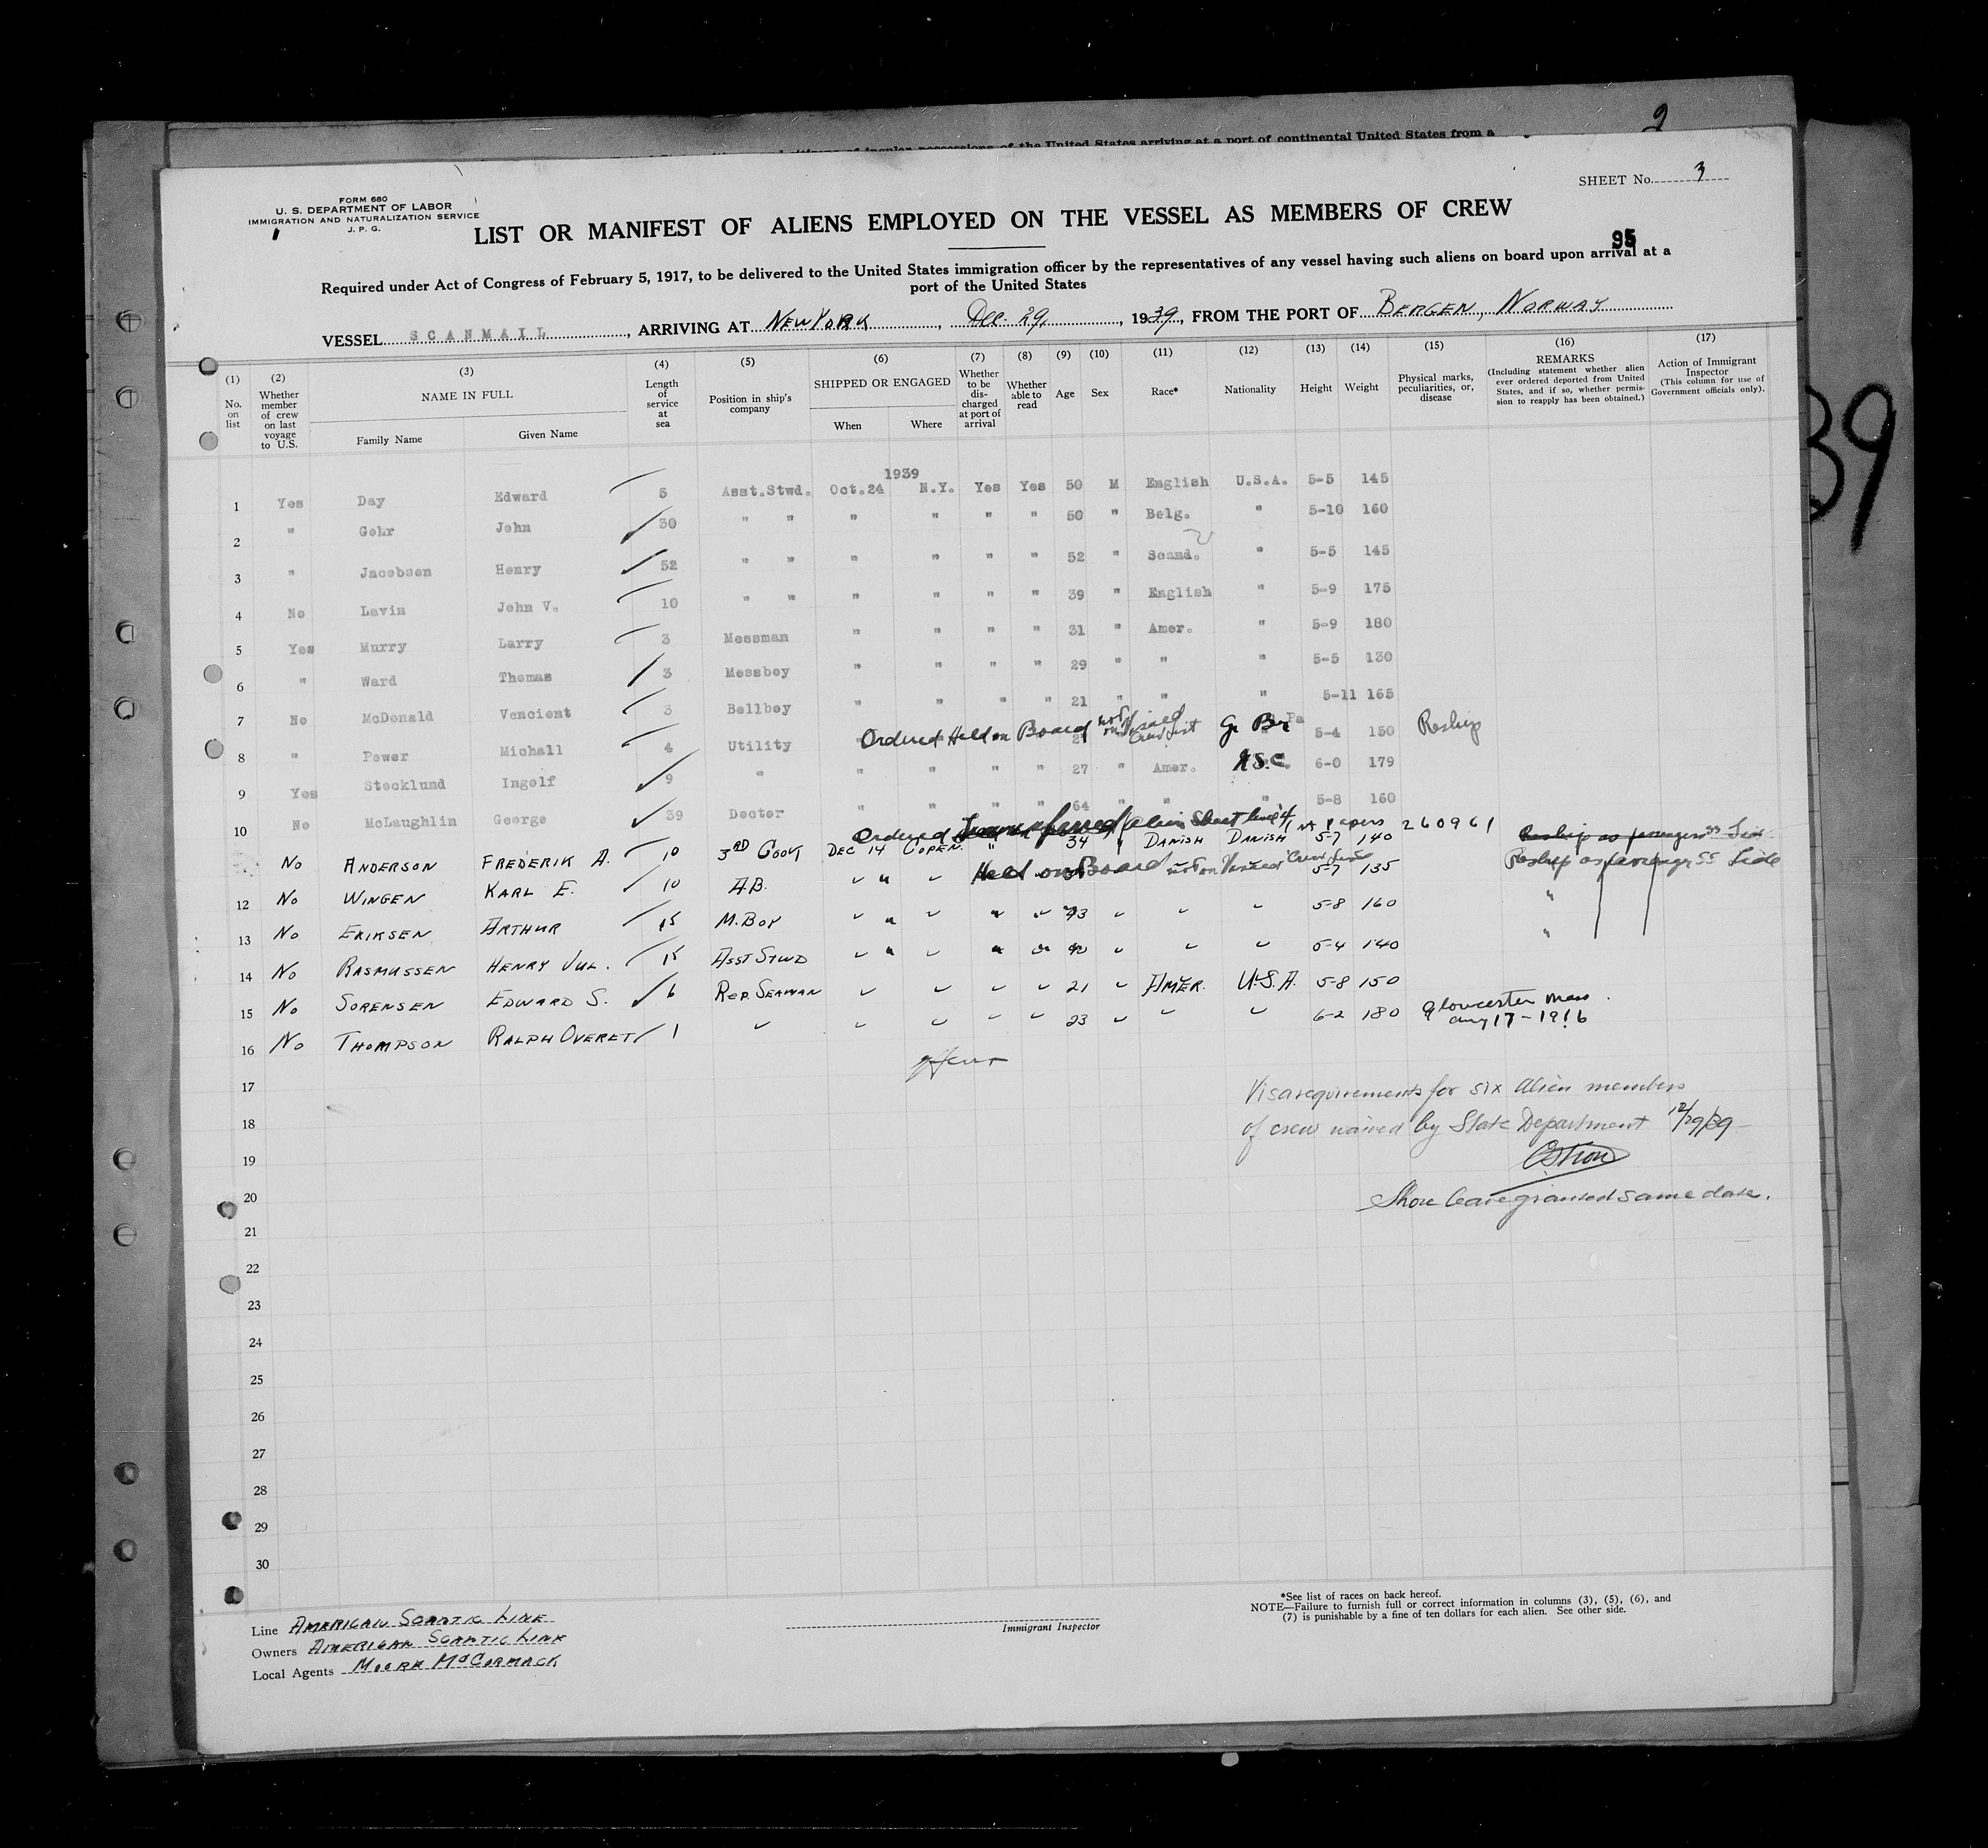 2
of insular possessions of the United States arriving at a port of continental United States from a
SHEET No. 3
FORM 680
U. S. DEPARTMENT OF LABOR
IMMIGRATION AND NATURALIZATION SERVICE
J. P. G.
LIST OR MANIFEST OF ALIENS EMPLOYED ON THE VESSEL AS MEMBERS OF CREW
95
Required under Act of Congress of February 5, 1917, to be delivered to the United States immigration officer by the representatives of any vessel having such aliens on board upon arrival at a
port of the United States
VESSEL SCANMAIL, ARRIVING AT NEW YORK, Dec. 29, 1939, FROM THE PORT OF BERGEN, NORWAY
(1) No. on list
(2) Whether member of crew on last voyage to U.S.
(3) NAME IN FULL
Family Name Given Name
(4) Length of service at sea
(5) Position in ship's company
(6) SHIPPED OR ENGAGED
When Where
(7) Whether to be discharged at port of arrival
(8) Whether able to read
(9) Age
(10) Sex
(11) Race*
(12) Nationality
(13) Height
(14) Weight
(15) Physical marks, peculiarities, or, disease
(16) REMARKS (Including statement whether alien ever ordered deported from United States, and if so, whether permission to reapply has been obtained.)
(17) Action of Immigrant Inspector (This column for use of Government officials only).
39
1939
1 Yes Day Edward 5 Asst.Stwd. Oct.24 N.Y. Yes Yes 50 M English U.S.A. 5-5 145
2 " Gehr John 30 " " " " " " 50 " Belg. " 5-10 160
3 " Jacobsen Henry 52 " " " " " " 52 " Scand. " 5-5 145
4 No Lavin John V. 10 " " " " " " 39 " English " 5-9 175
5 Yes Murry Larry 3 Messman " " " " 31 " Amer. " 5-9 180
6 " Ward Thomas 3 Messboy " " " " 29 " " " 5-5 130
7 No McDonald Vencient 3 Bellboy " " " " 21 " " " 5-11 165
8 " Power Michall 4 Utility Ordered Held on Board not on Visaed Crew List Gr Br 5-4 150 Reship
9 Yes Stocklund Ingolf 9 " " " " " 27 " Amer. 6-0 179
10 No McLaughlin George 39 Doctor " " " " 64 " " " 5-8 160
Ordered Transferred Alien Sheet line 4 1st Papers 260961
No ANDERSON FREDERIK A. 10 3RD COOK DEC 14 COPEN. " 34 " DANISH DANISH 5-7 140
Held on Board not on Visaed Crew List
Reship as passenger SS
12 No WINGEN KARL E. 10 A.B. 5-7 135
13 No ERIKSEN ARTHUR 15 M. BOY 43 5-8 160 "
14 No RASMUSSEN HENRY JUL. 15 ASST STWD 40 5-4 140 "
15 No SORENSEN EDWARD S. 6 REP. SEAMAN 21 AMER. U.S.A. 5-8 150
16 No THOMPSON RALPH OVERET 1 23 6-2 180 Gloucester Mass.
Aug 17-1916
17
Visa requirements for six alien members
18
of crew waived by State Department 12/29/39
19
20
Shore leave granted same date.
21
22
23
24
25
26
27
28
29
30
Line AMERICAN SCANTIC LINE
Owners AMERICAN SCANTIC LINE
Local Agents MOORE McCORMACK
Immigrant Inspector
*See list of races on back hereof.
NOTE—Failure to furnish full or correct information in columns (3), (5), (6), and
(7) is punishable by a fine of ten dollars for each alien. See other side.